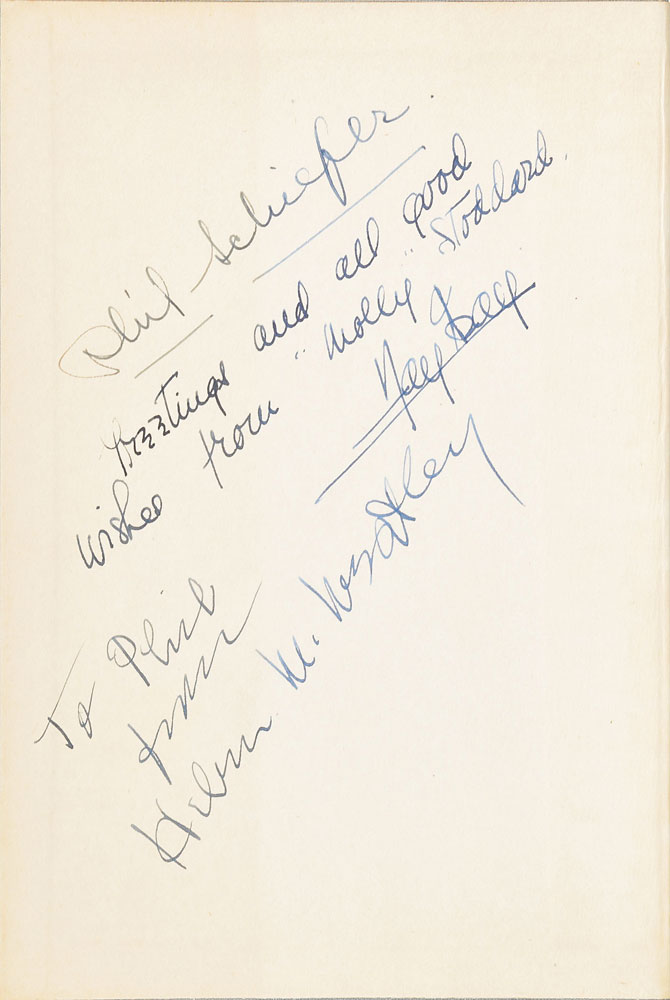 Phil Schiefer
Greetings and all good
wishes from "Molly" Stoddard.
To Phil
from
Helen M. Wheatley